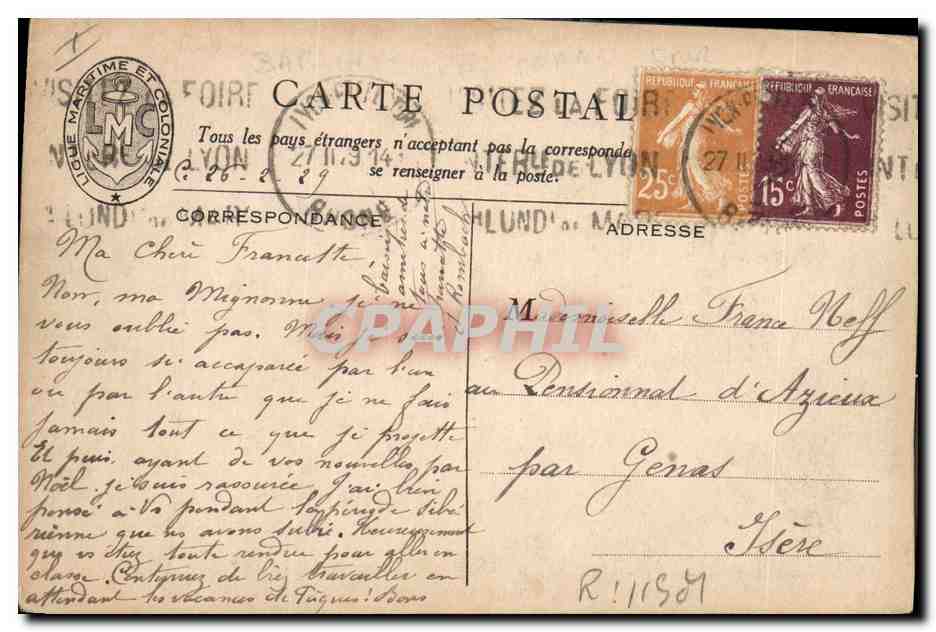 LIGUE MARITIME ET COLONIALE
L M C
CARTE POSTALE
Tous les pays étrangers n'acceptant pas la corresponda
se renseigner à la poste.
C. 26-2-29
27 II 29 14
FOIRE
LYON
LUNDI
CORRESPONDANCE
ADRESSE
REPUBLIQUE FRANÇAISE
25c
POSTES
REPUBLIQUE FRANÇAISE
15c
POSTES
27 II
FOIRE
DE LYON
LUNDI
Ma Chère Francette
Non, ma Mignonne je ne
vous oublie pas. Mais je suis
toujours si accaparée par l'un
ou par l'autre que je ne fais
jamais tout ce que je projette
Et puis ayant de vos nouvelles par
Noël je suis rassurée J'ai bien
pensé à Vs pendant la période Sibé
rienne que ns avons subie. Heureusement
que vs étiez toute rendue pour aller en
classe. Continuez de bien travailler en
attendant les vacances de Pâques! Bons
baisers
tous
Mademoiselle France Neff
au Pensionnat d'Azieux
par Genas
Isère
CPAPHIL
R! 11581